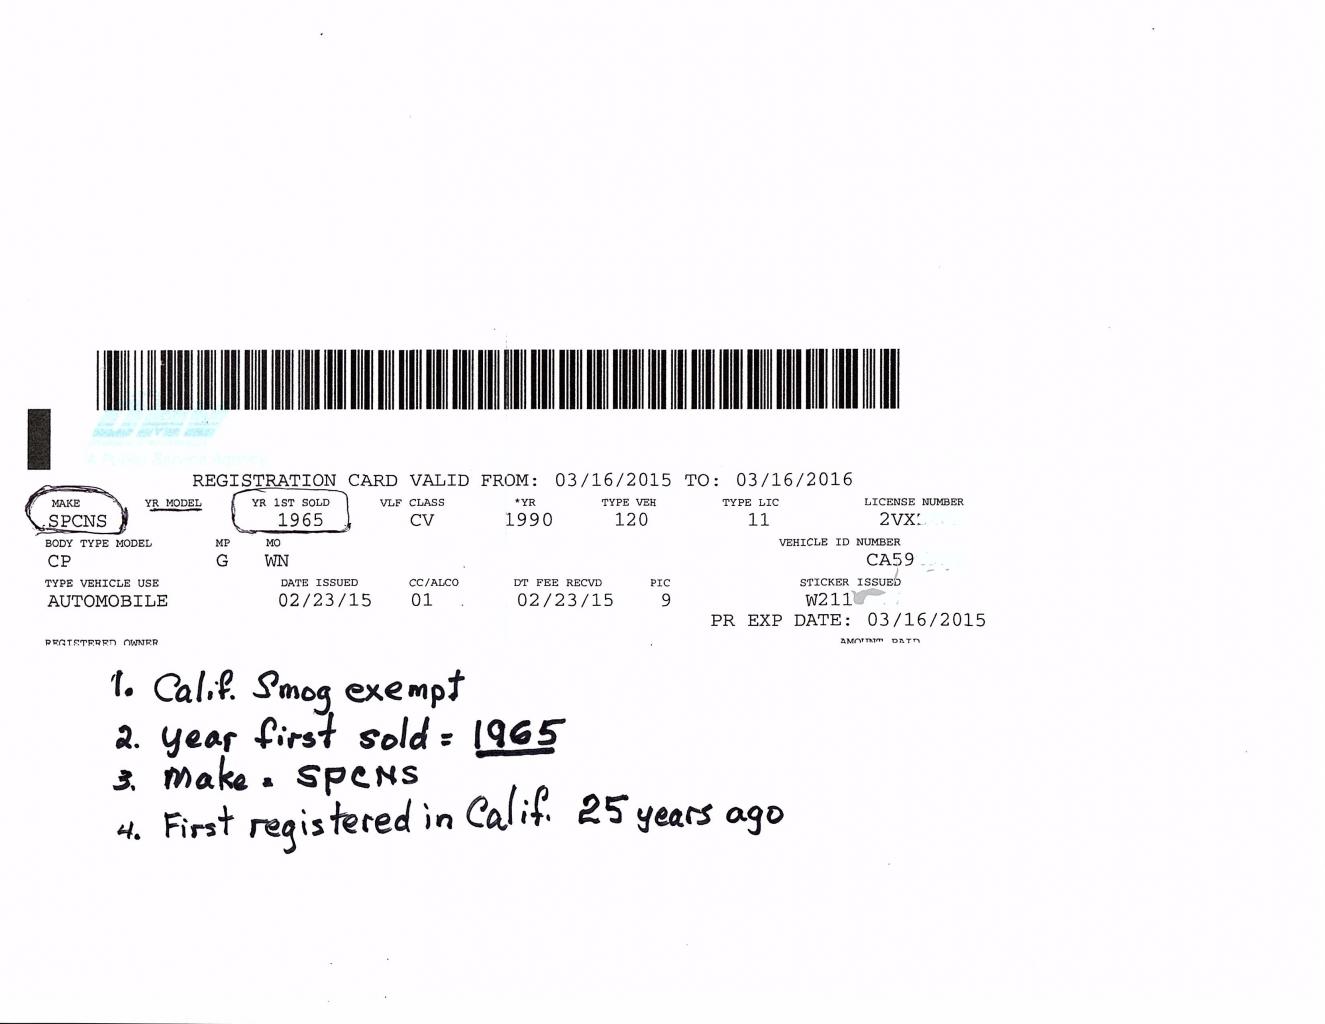 A Public Service Agency
REGISTRATION CARD VALID FROM: 03/16/2015 TO: 03/16/2016
MAKE YR MODEL YR 1ST SOLD VLF CLASS *YR TYPE VEH TYPE LIC LICENSE NUMBER
SPCNS 1965 CV 1990 120 11 2VX
BODY TYPE MODEL MP MO VEHICLE ID NUMBER
CP G WN CA59
TYPE VEHICLE USE DATE ISSUED CC/ALCO DT FEE RECVD PIC STICKER ISSUED
AUTOMOBILE 02/23/15 01 02/23/15 9 W211
PR EXP DATE: 03/16/2015
REGISTERED OWNER AMOUNT PAID
1. Calif. Smog exempt
2. year first sold = 1965
3. Make = SPCNS
4. First registered in Calif. 25 years ago